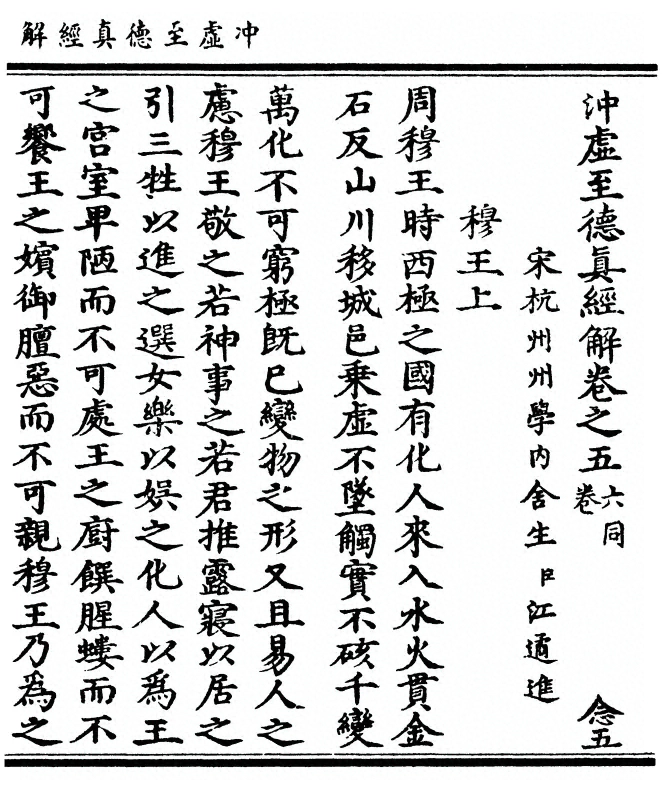 冲虛至德真經解
沖虛至德眞經解卷之五六同卷 念五
宋杭州州學內舍生臣江遹進
穆王上
周穆王時西極之國有化人來入水火貫金
石反山川移城邑乗虛不墜觸實不硋千變
萬化不可窮極旣已變物之形又且易人之
慮穆王敬之若神事之若君推露寢以居之
引三牲以進之選女樂以娛之化人以爲王
之宮室卑陋而不可處王之廚饌腥螻而不
可饗王之嬪御膻惡而不可親穆王乃爲之